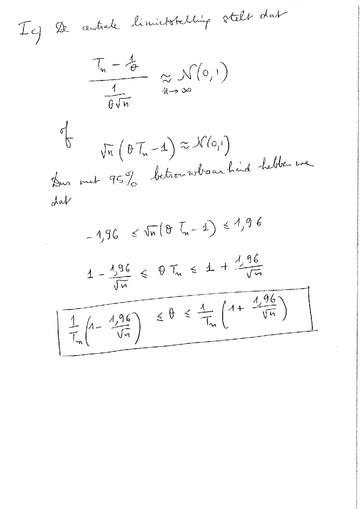 I c) De centrale limietstelling stelt dat
(T_n - 1/θ) / (1/(θ√n)) ≈_{n→∞} N(0,1)
of
√n (θ T_n - 1) ≈ N(0,1)
Dus met 95% betrouwbaarheid hebben we
dat
-1,96 ≤ √n (θ T_n - 1) ≤ 1,96
1 - 1,96/√n ≤ θ T_n ≤ 1 + 1,96/√n
1/T_n (1 - 1,96/√n) ≤ θ ≤ 1/T_n (1 + 1,96/√n)